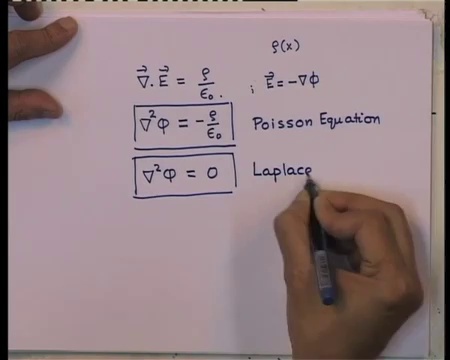 ρ(x)
∇⃗. E⃗ = ρ/ε₀. ; E⃗ = -∇Φ
∇²Φ = -ρ/ε₀ Poisson Equation
∇²Φ = 0 Laplace